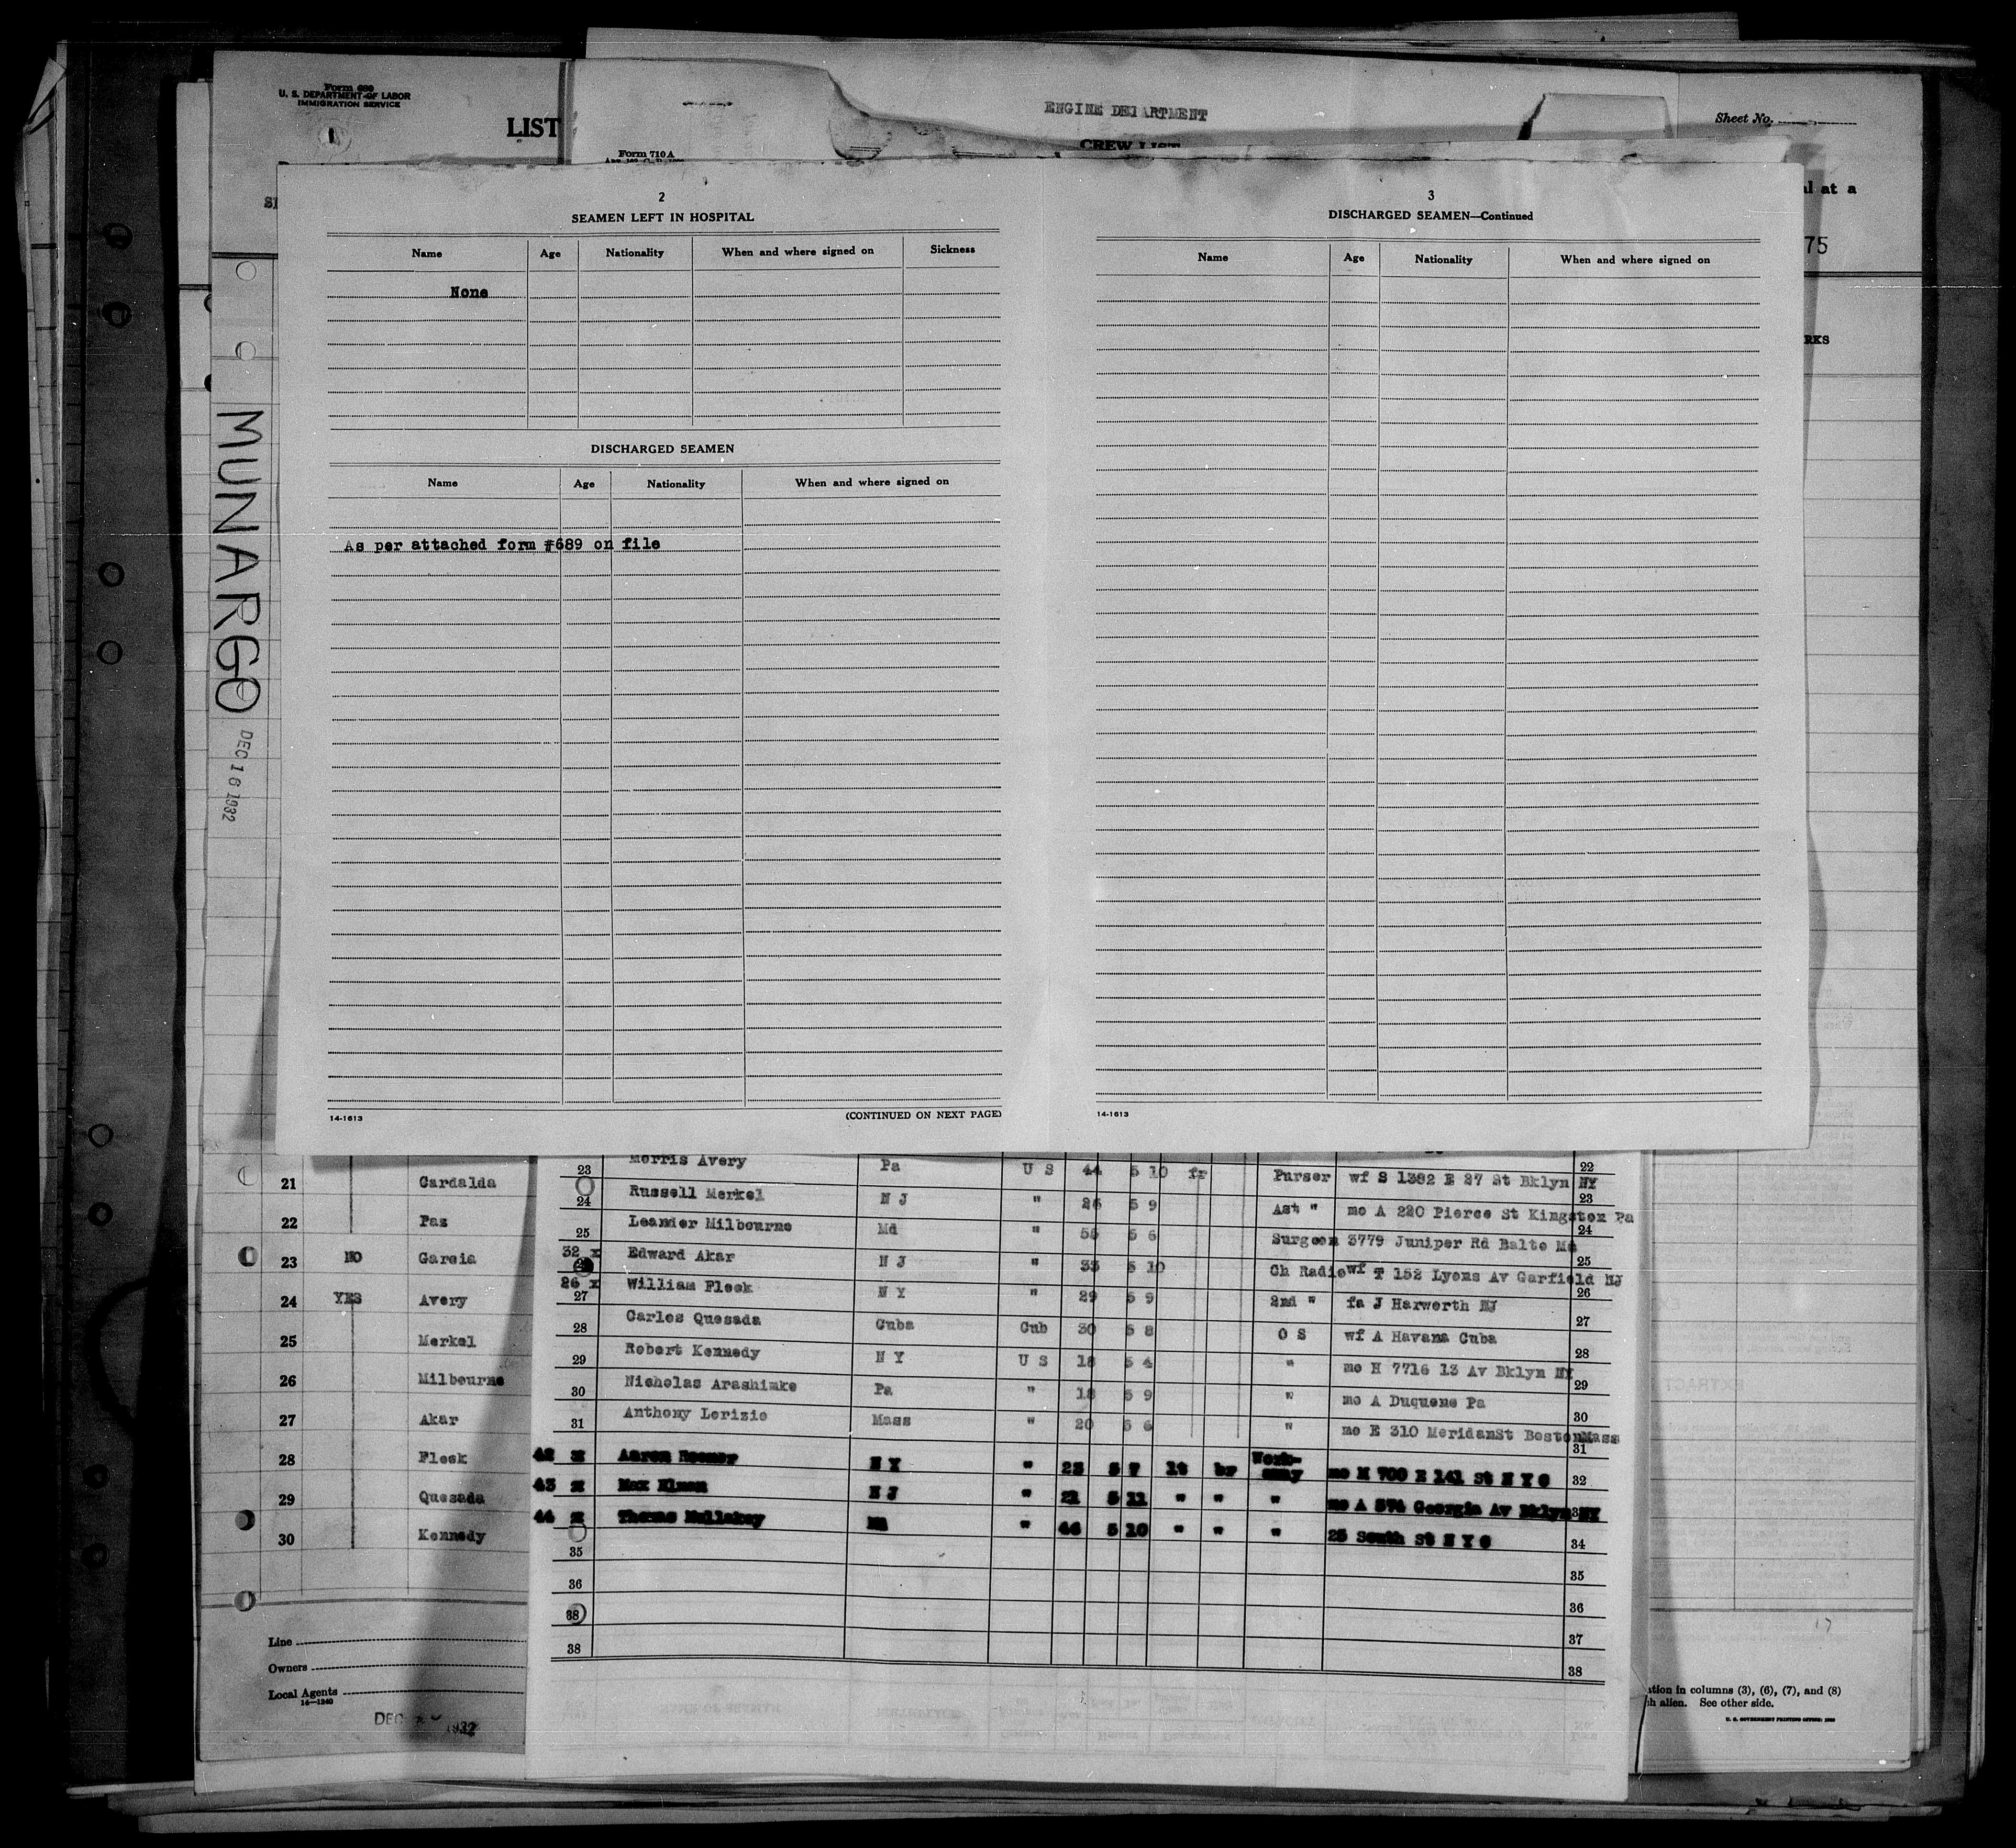 Form 689
U. S. DEPARTMENT OF LABOR
IMMIGRATION SERVICE
LIST
ENGINE DEPARTMENT
CREW LIST
Form 710 A
Sheet No.
al at a
75
RKS
MUNARGO
DEC 16 1932
2
SEAMEN LEFT IN HOSPITAL
Name Age Nationality When and where signed on Sickness
None
DISCHARGED SEAMEN
Name Age Nationality When and where signed on
As per attached form #689 on file
14-1613 (CONTINUED ON NEXT PAGE)
3
DISCHARGED SEAMEN—Continued
Name Age Nationality When and where signed on
14-1613
21 Cardalda
22 Paz
23 NO Garcia
24 YES Avery
25 Merkel
26 Milbourne
27 Akar
28 Fleek
29 Quesada
30 Kennedy
Line
Owners
Local Agents
14-1240
DEC 1932
23 Morris Avery Pa U S 44 5 10 fr Purser wf S 1382 E 27 St Bklyn NY 22
24 Russell Merkel N J " 26 5 9 Ast " mo A 220 Pierce St Kingston Pa 23
25 Leander Milbourne Md " 55 5 6 Surgeon 3779 Juniper Rd Balto Md 24
32 x Edward Akar N J " 33 5 10 Ch Radio wf T 152 Lyons Av Garfield NJ 25
26 x 27 William Fleek N Y " 29 5 9 2nd " fa J Harworth NJ 26
28 Carlos Quesada Cuba Cub 30 5 8 O S wf A Havana Cuba 27
29 Robert Kennedy N Y U S 18 5 4 " mo H 7716 13 Av Bklyn NY 28
30 Nicholas Arashimke Pa " 18 5 9 " mo A Duquene Pa 29
31 Anthony Lorizio Mass " 20 5 6 " mo E 310 MeridanSt BostonMass 30
31
42 x Aaron Roemer N Y " 23 5 7 lt br Work-away mo M 700 E 141 St N Y C 32
43 x Max Elman N J " 21 5 11 " " " mo A 574 Georgia Av Bklyn NY
44 x Thomas Mullakey " 46 5 10 " " " 25 South St N Y C 34
35 35
36 36
38 37
38 38
ation in columns (3), (6), (7), and (8)
ch alien. See other side.
U. S. GOVERNMENT PRINTING OFFICE